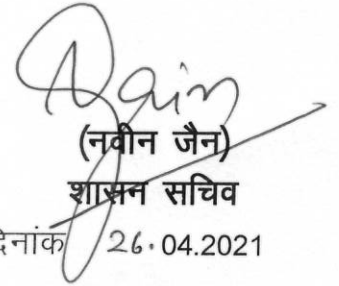 Jain
(नवीन जैन)
शासन सचिव
दिनांक 26.04.2021